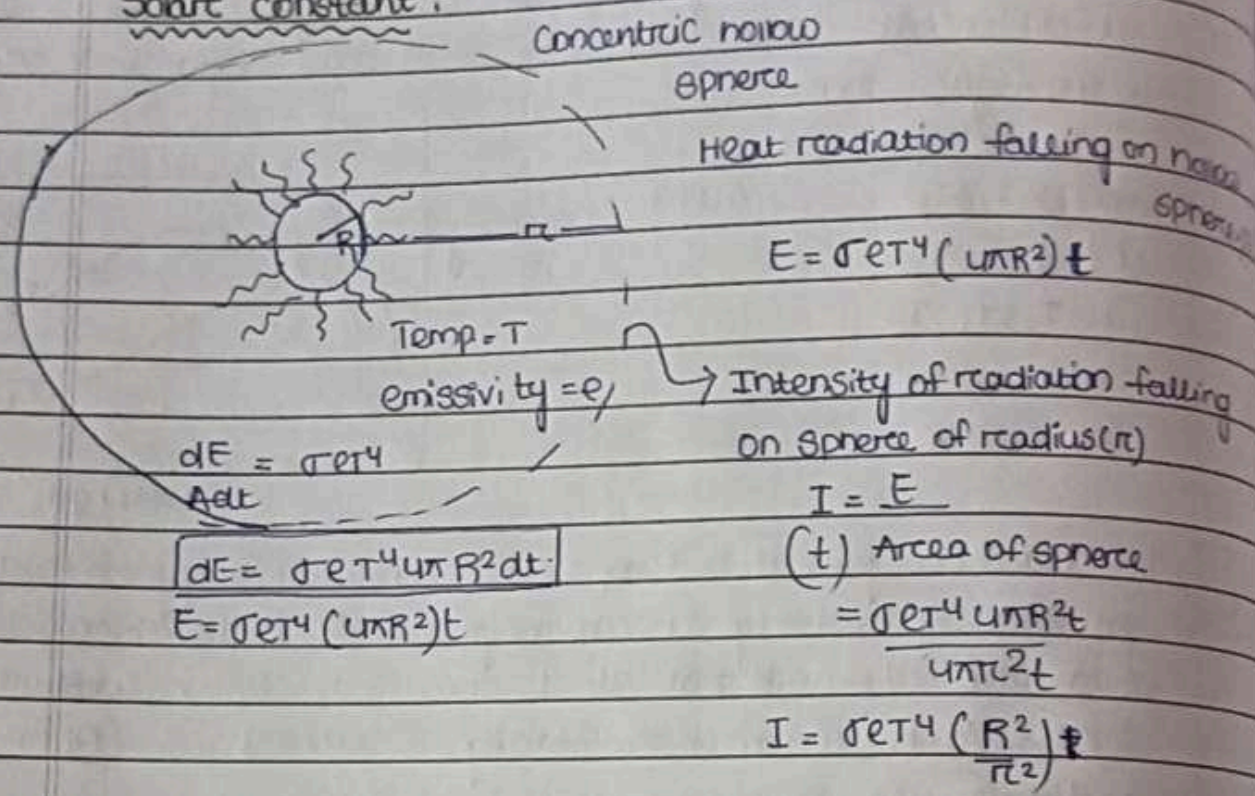 Solar Constant:
Concentric hollow
sphere
Heat radiation falling on hollow
sphere
R
r
E = σeT⁴ (4πR²) t
Temp = T
emissivity = e,
→ Intensity of radiation falling
on sphere of radius (r)
dE = σeT⁴
Adt
I = E
(t) Area of sphere
dE = σeT⁴4πR²dt
E = σeT⁴ (4πR²)t
= σeT⁴ 4πR²t
4πr²t
I = σeT⁴ (R²)
r²